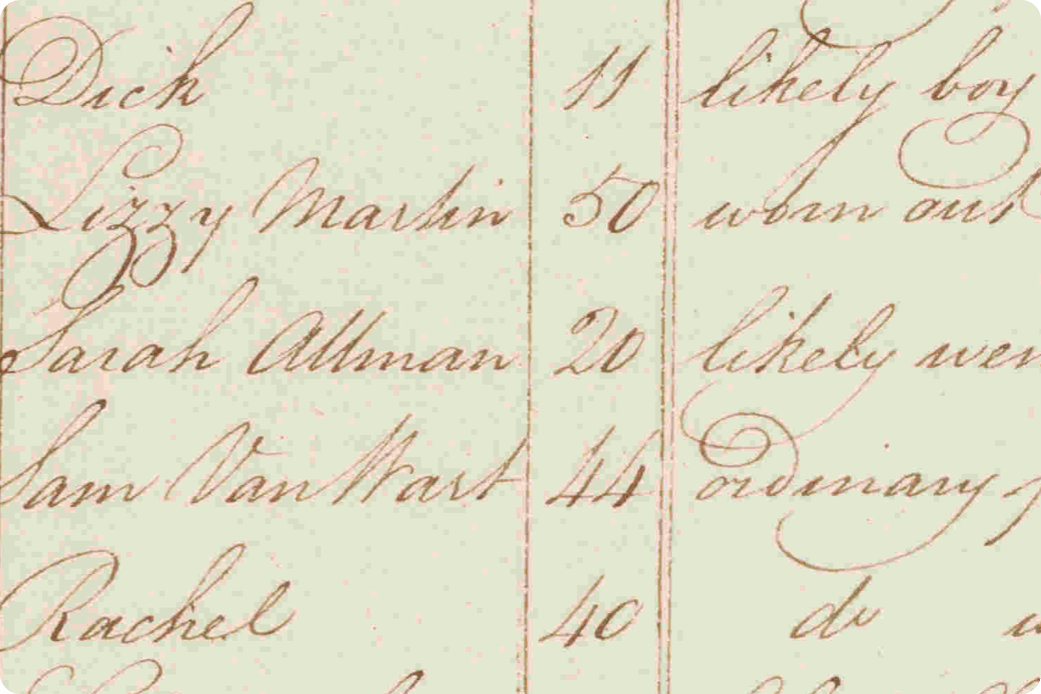 Dick 11 likely boy
Lizzy Martin 50 worn out
Sarah Allman 20 likely
Sam Van Wart 44 ordinary
Rachel 40 do